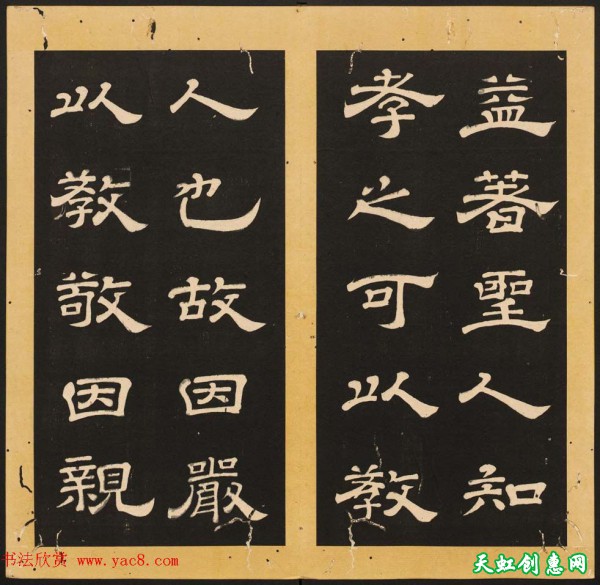 益著聖人知
孝之可以教
人也故因嚴
以教敬因親
书法欣赏 www.yac8.com
天虹创惠网